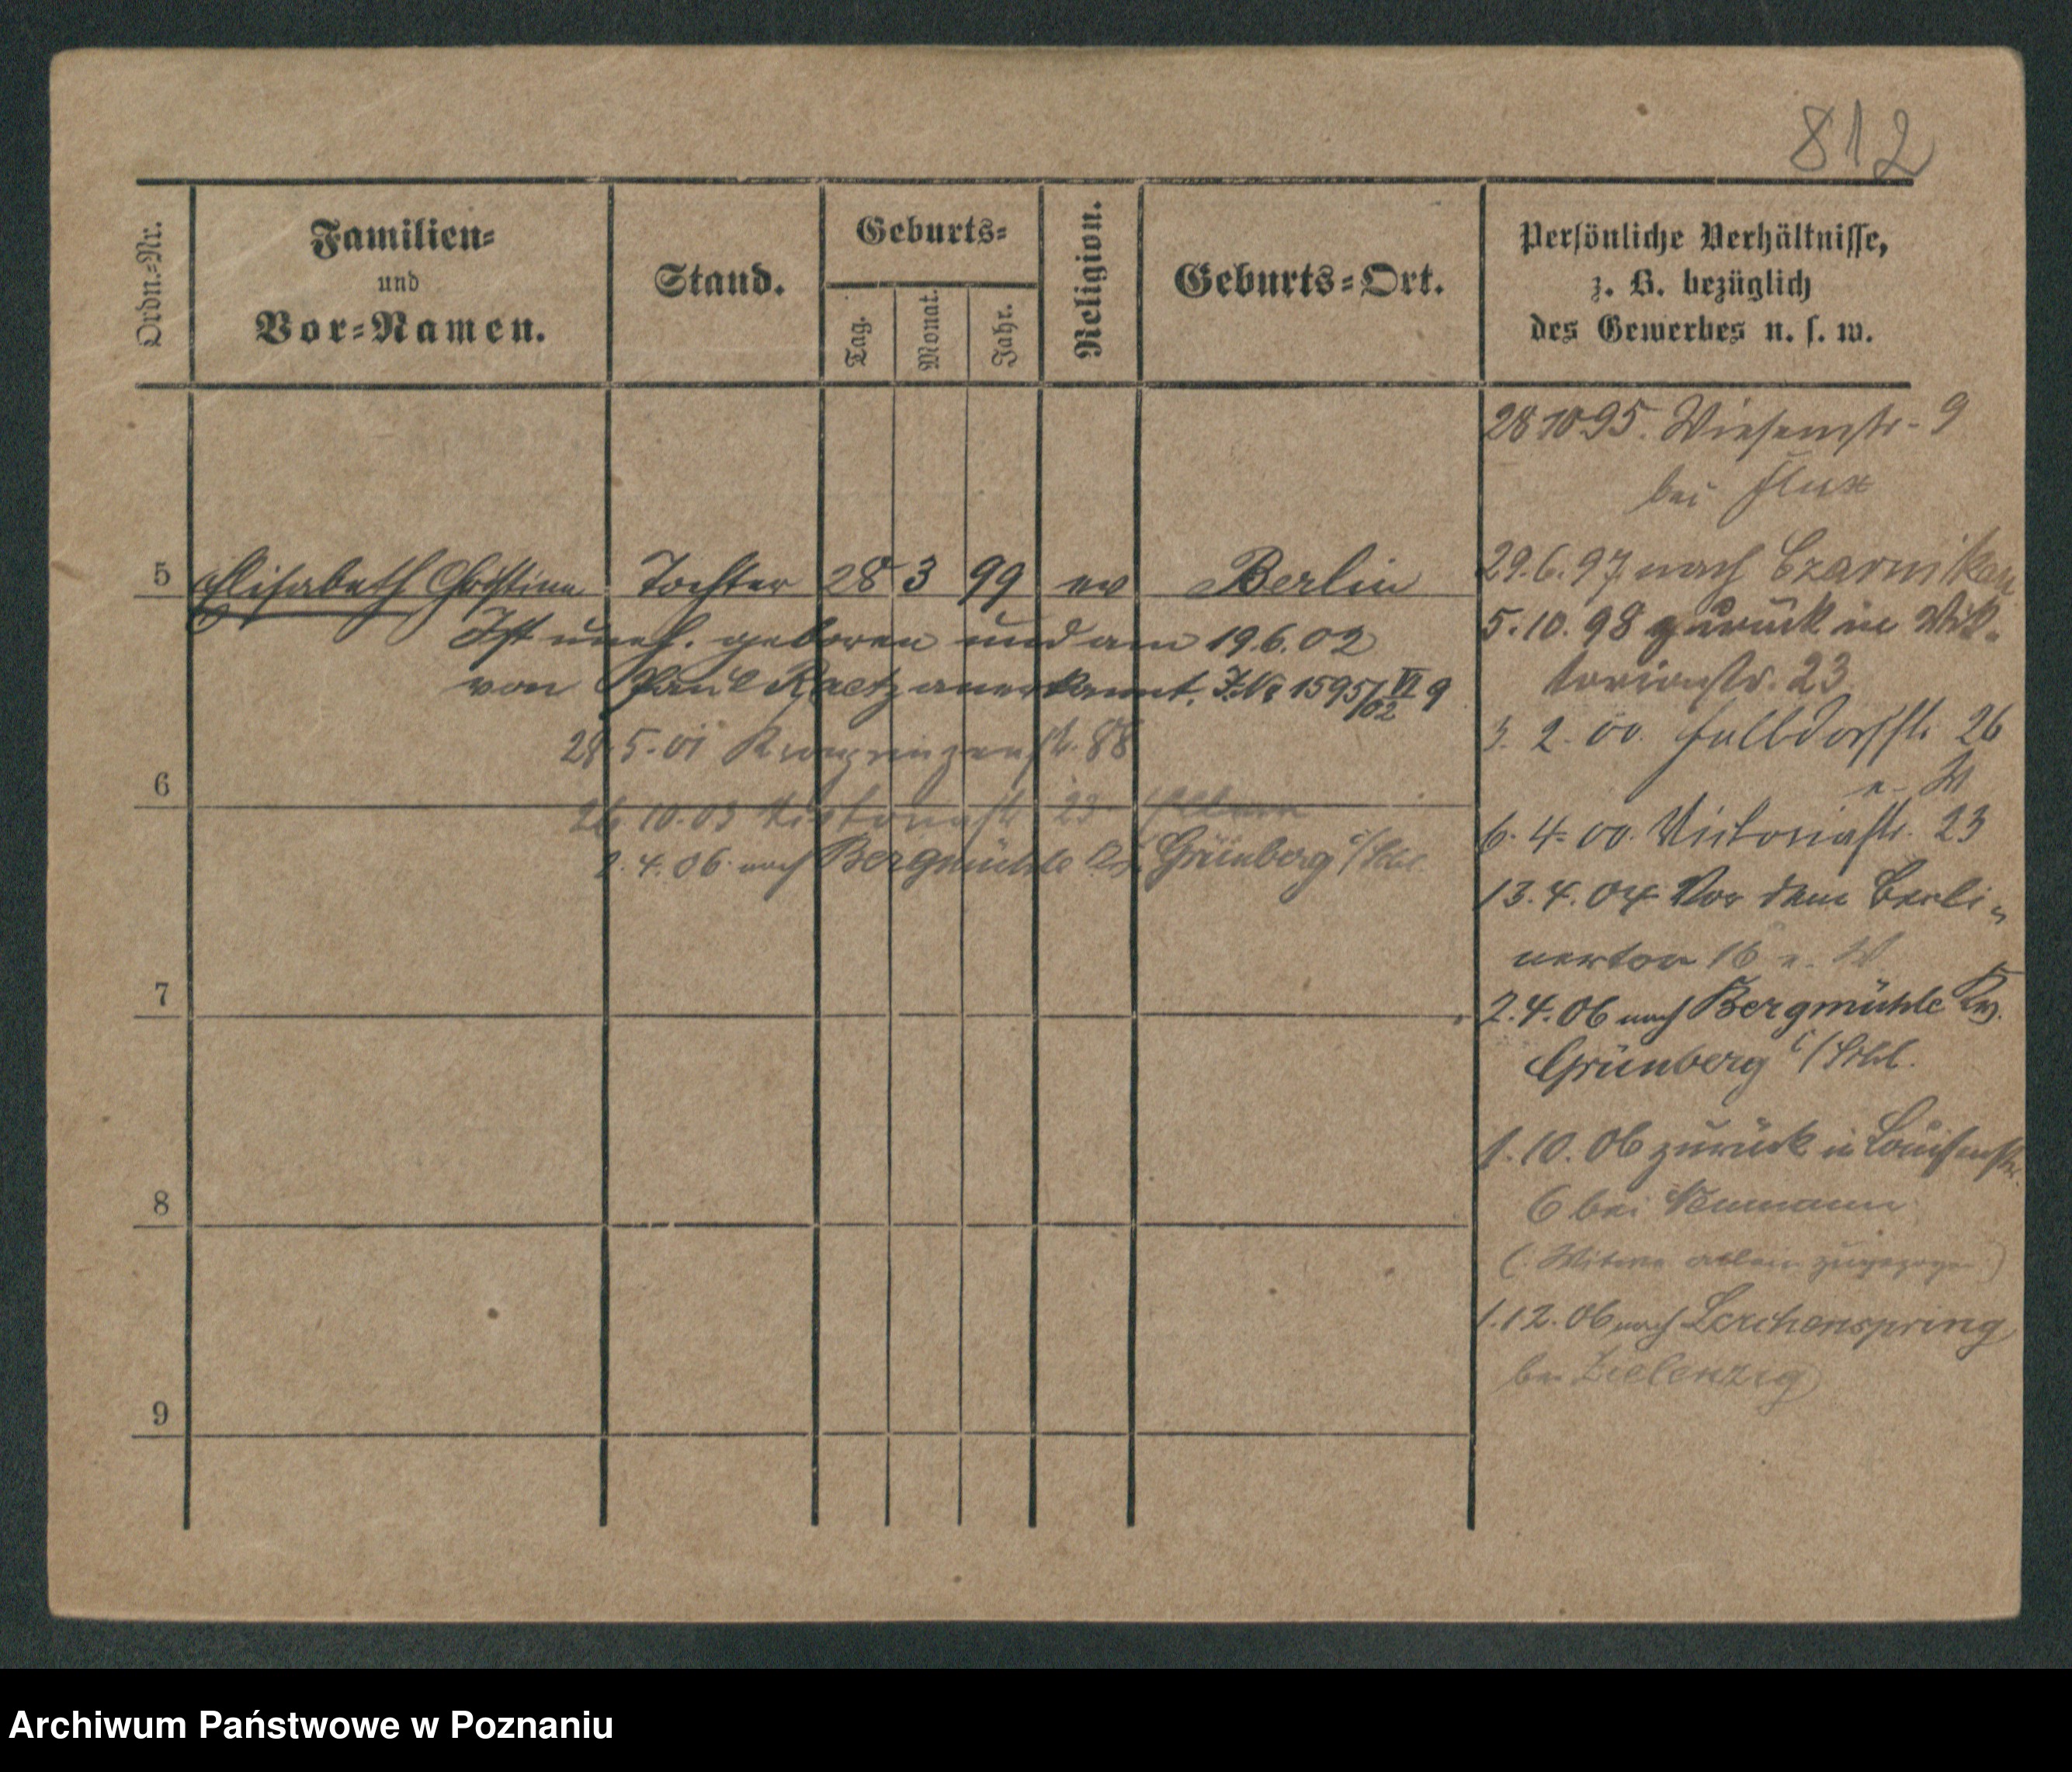 812
Ordn.=Nr.
Familien=
und
Vor=Namen.
Stand.
Geburts=
Tag.
Monat.
Jahr.
Religion.
Geburts=Ort.
Persönliche Verhältnisse,
z. B. bezüglich
des Gewerbes u. s. w.
5 Elisabeth Christina Tochter 28 3 99 ev Berlin
Ist unehl. geboren und am 19.6.02
von Paul Raetz anerkannt. J.№ 1595/02 VI 9
28.5.01 Kronprinzenstr. 88
6
26 10.03 Victoriastr 23
2.4.06 nach Bergmühle Kr. Grünberg i/Schl.
7
8
9
28 10 95. Wiesenstr. 9
bei Flux
29.6.97 nach Czarnikau
5.10.98 zurück in Vik-
toriastr. 23.
3. 2. 00. 26
6. 4. 00. Victoriastr. 23
13.4.04 Vor dem Berli-
nertor 16
2.4.06 nach Bergmühle Kr.
Grünberg i/Schl.
1.10.06 zurück in Louisenstr.
6 bei Neumann
(: Witwe allein zugezogen)
1.12.06 nach Lerchenspring
bei Zielenzig
Archiwum Państwowe w Poznaniu